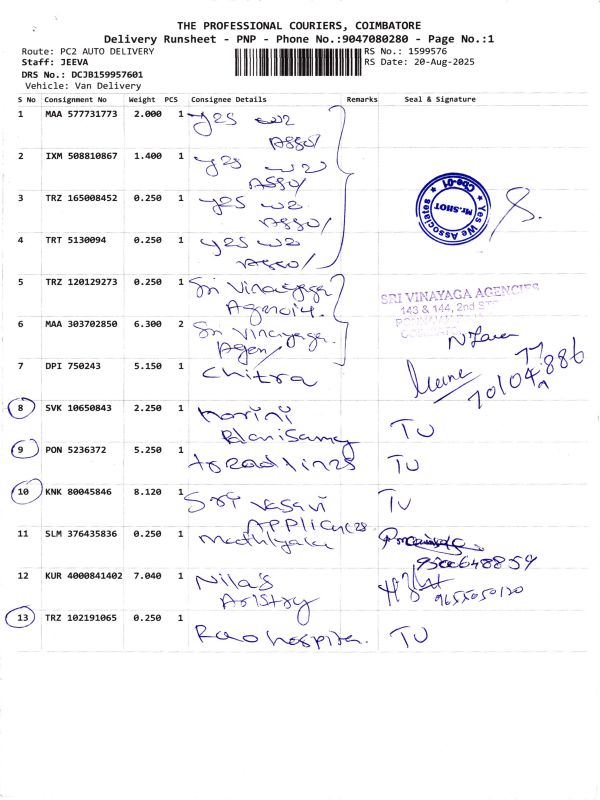 THE PROFESSIONAL COURIERS, COIMBATORE
Delivery Runsheet - PNP - Phone No.:9047080280 - Page No.:1
Route: PC2 AUTO DELIVERY RS No.: 1599576
Staff: JEEVA RS Date: 20-Aug-2025
DRS No.: DCJB159957601
Vehicle: Van Delivery
S No Consignment No Weight PCS Consignee Details Remarks Seal & Signature
1 MAA 577731773 2.000 1 yes we
Asso/
2 IXM 508810867 1.400 1 yes we
Asso/
3 TRZ 165008452 0.250 1 yes we
Asso/
4 TRT 5130094 0.250 1 yes we
Asso/
Yes We Associates
Mr.SHOT
Cbe-01
5 TRZ 120129273 0.250 1 Sri Vinayaga
SRI VINAYAGA AGENCIES
143 & 144, 2nd
6 MAA 303702850 6.300 2 Sri Vinayaga
Agen/
7 DPI 750243 5.150 1 Chitra
8 SVK 10650843 2.250 1
Palanisamy TU
9 PON 5236372 5.250 1 TU
10 KNK 80045846 8.120 1 Sri Vasavi TU
Appliances
11 SLM 376435836 0.250 1
9500648859
12 KUR 4000841402 7.040 1 Nila's
Aristry 9655050120
13 TRZ 102191065 0.250 1 Rao hospita. TU